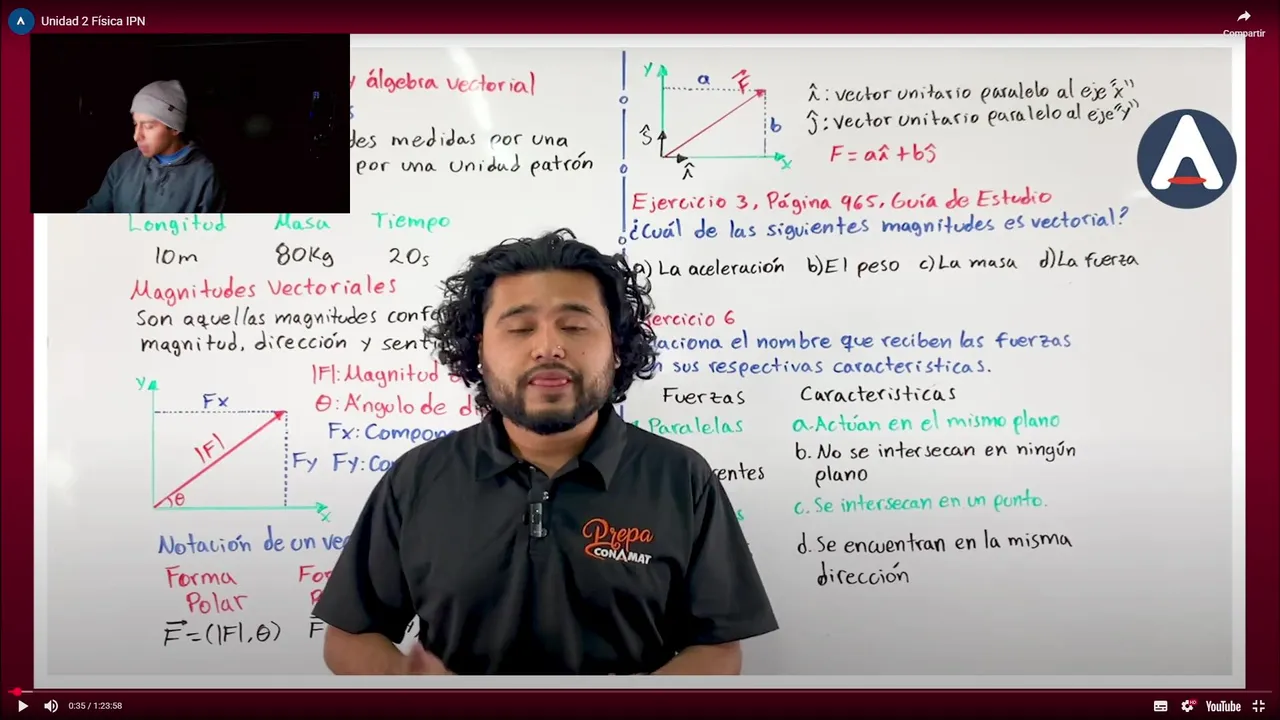 Unidad 2 Física IPN
Compartir
y álgebra vectorial
des medidas por una
por una unidad patrón
Longitud Masa Tiempo
10m 80Kg 20s
Magnitudes Vectoriales
Son aquellas magnitudes confo
magnitud, dirección y senti
y
Fx
|F|
Fy
θ
x
|F|: Magnitud
θ: Ángulo de di
Fx: Compon
Fy: Co
Notación de un vec
Forma
Polar
F=(|F|,θ)
y a F
b
ĵ
î
x
î: vector unitario paralelo al eje "x"
ĵ: vector unitario paralelo al eje "y"
F=aî+bĵ
Ejercicio 3, Página 965, Guía de Estudio
¿Cuál de las siguientes magnitudes es vectorial?
a) La aceleración b) El peso c) La masa d) La fuerza
jercicio 6
aciona el nombre que reciben las fuerzas
n sus respectivas características.
Fuerzas Características
Paralelas a. Actúan en el mismo plano
b. No se intersecan en ningún
entes plano
c. Se intersecan en un punto.
d. Se encuentran en la misma
dirección
Prepa
CONAMAT
0:35 / 1:23:58
HD
YouTube